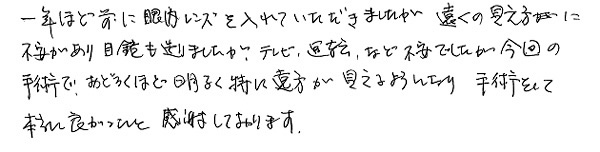 一年ほど前に眼内レンズを入れていただきましたが 遠くの見え方に
不安があり目鏡も造りましたが、テレビ、運転、など不安でしたが今回の
手術で、おどろくほど明るく特に遠方が見えるようになり 手術をして
本当に良かったと感謝しております.